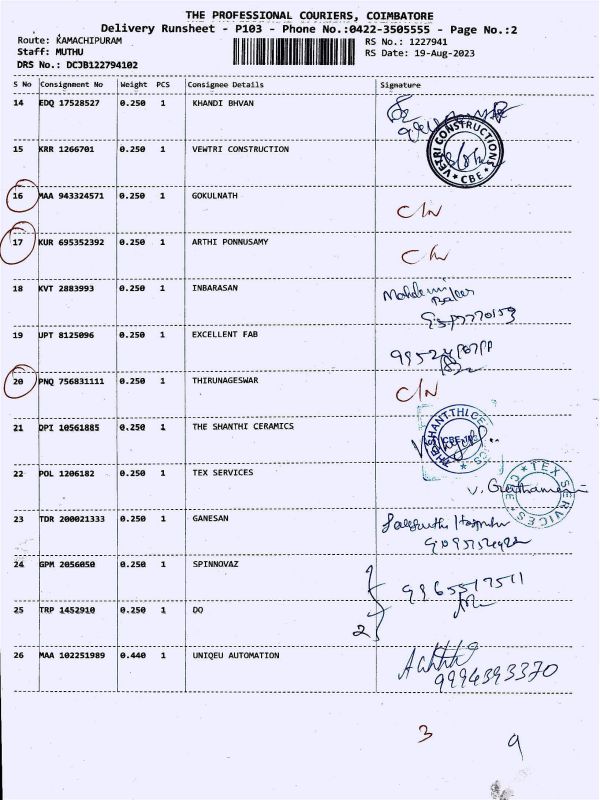 THE PROFESSIONAL COURIERS, COIMBATORE
Delivery Runsheet - P103 - Phone No.:0422-3505555 - Page No.:2
Route: KAMACHIPURAM RS No.: 1227941
Staff: MUTHU RS Date: 19-Aug-2023
DRS No.: DCJB122794102
S No Consignment No Weight PCS Consignee Details Signature
14 EDQ 17528527 0.250 1 KHANDI BHVAN
15 KRR 1266701 0.250 1 VEWTRI CONSTRUCTION VETRI CONSTRUCTIONS CBE
16 MAA 943324571 0.250 1 GOKULNATH C/N
17 KUR 695352392 0.250 1 ARTHI PONNUSAMY
18 KVT 2883993 0.250 1 INBARASAN
19 UPT 8125096 0.250 1 EXCELLENT FAB
20 PNQ 756831111 0.250 1 THIRUNAGESWAR C/N
21 DPI 10561885 0.250 1 THE SHANTHI CERAMICS
22 POL 1206182 0.250 1 TEX SERVICES TEX SERVICES CBE
23 TDR 200021333 0.250 1 GANESAN
24 GPM 2056050 0.250 1 SPINNOVAZ 9965517511
25 TRP 1452910 0.250 1 DO 2
26 MAA 102251989 0.440 1 UNIQEU AUTOMATION 9994393370
3 9